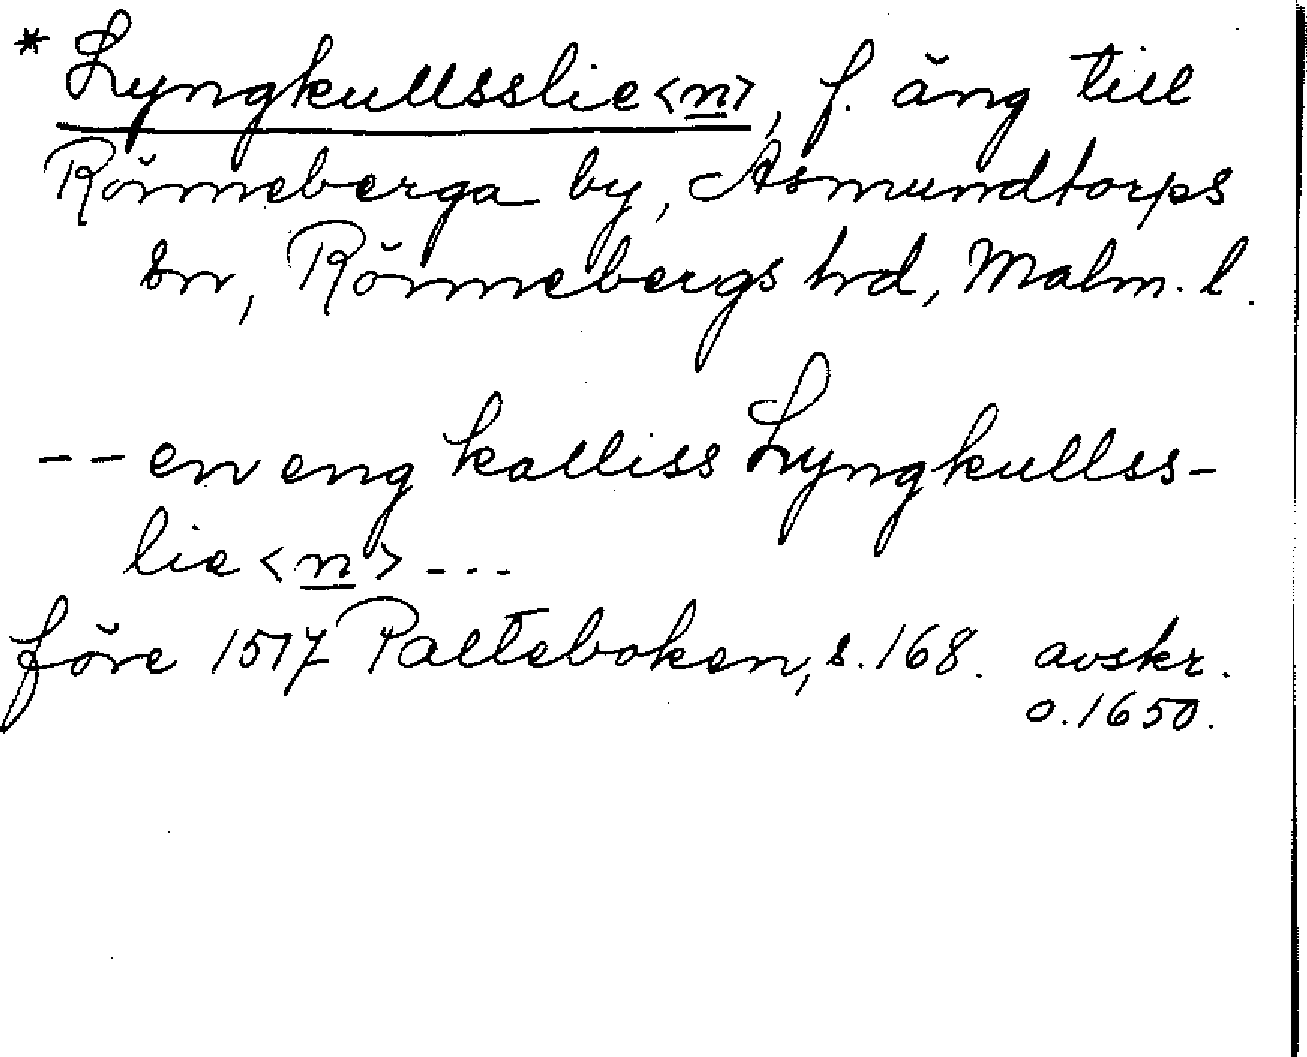 * Lyngkullsslie<n>, f. äng till
Rönneberga by, Asmundtorps
sn, Rönnebergs hd, Malm. l.
-- en eng kalliss Lyngkullss-
lie<n> ---
före 1517 Palteboken, s. 168. avskr.
o. 1650.